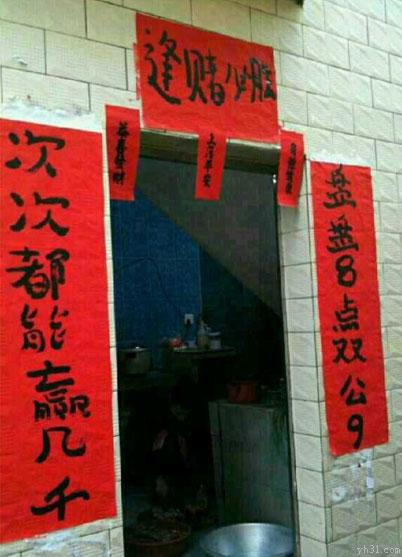 逢赌必胜
恭喜发财
上落平安
盘盘8点双公9
次次都能赢几千
yh31.com